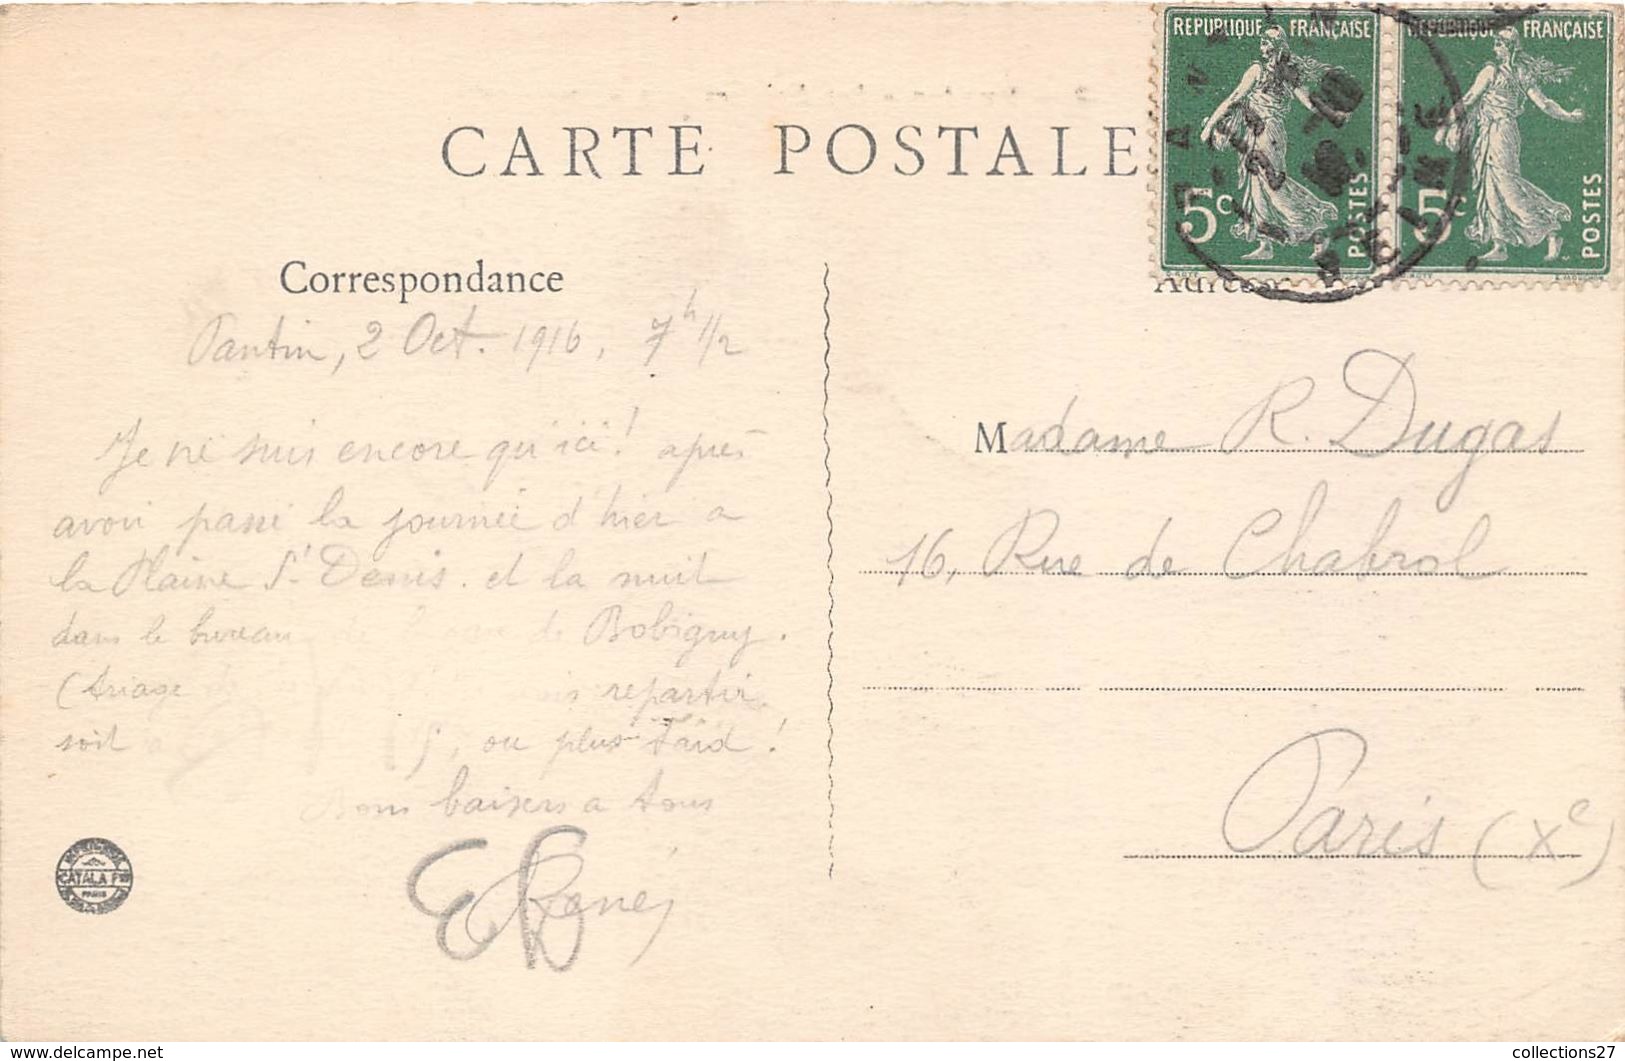 CARTE POSTALE
REPUBLIQUE FRANÇAISE
5c
POSTES
REPUBLIQUE FRANÇAISE
5c
POSTES
Correspondance
Pantin, 2 Oct. 1916, 7h 1/2
Je ne suis encore qu'ici ! après
avoir passé la journée d'hier a
la Plaine St Denis. et la nuit
dans le bureau de la gare de Bobigny.
(triage repartir
soit ou plus tard !
Bons baisers a tous
René
Adresse
Madame R. Dugas
16, Rue de Chabrol
Paris (Xe)
CATALA Fres
PARIS
www.delcampe.net
collections27